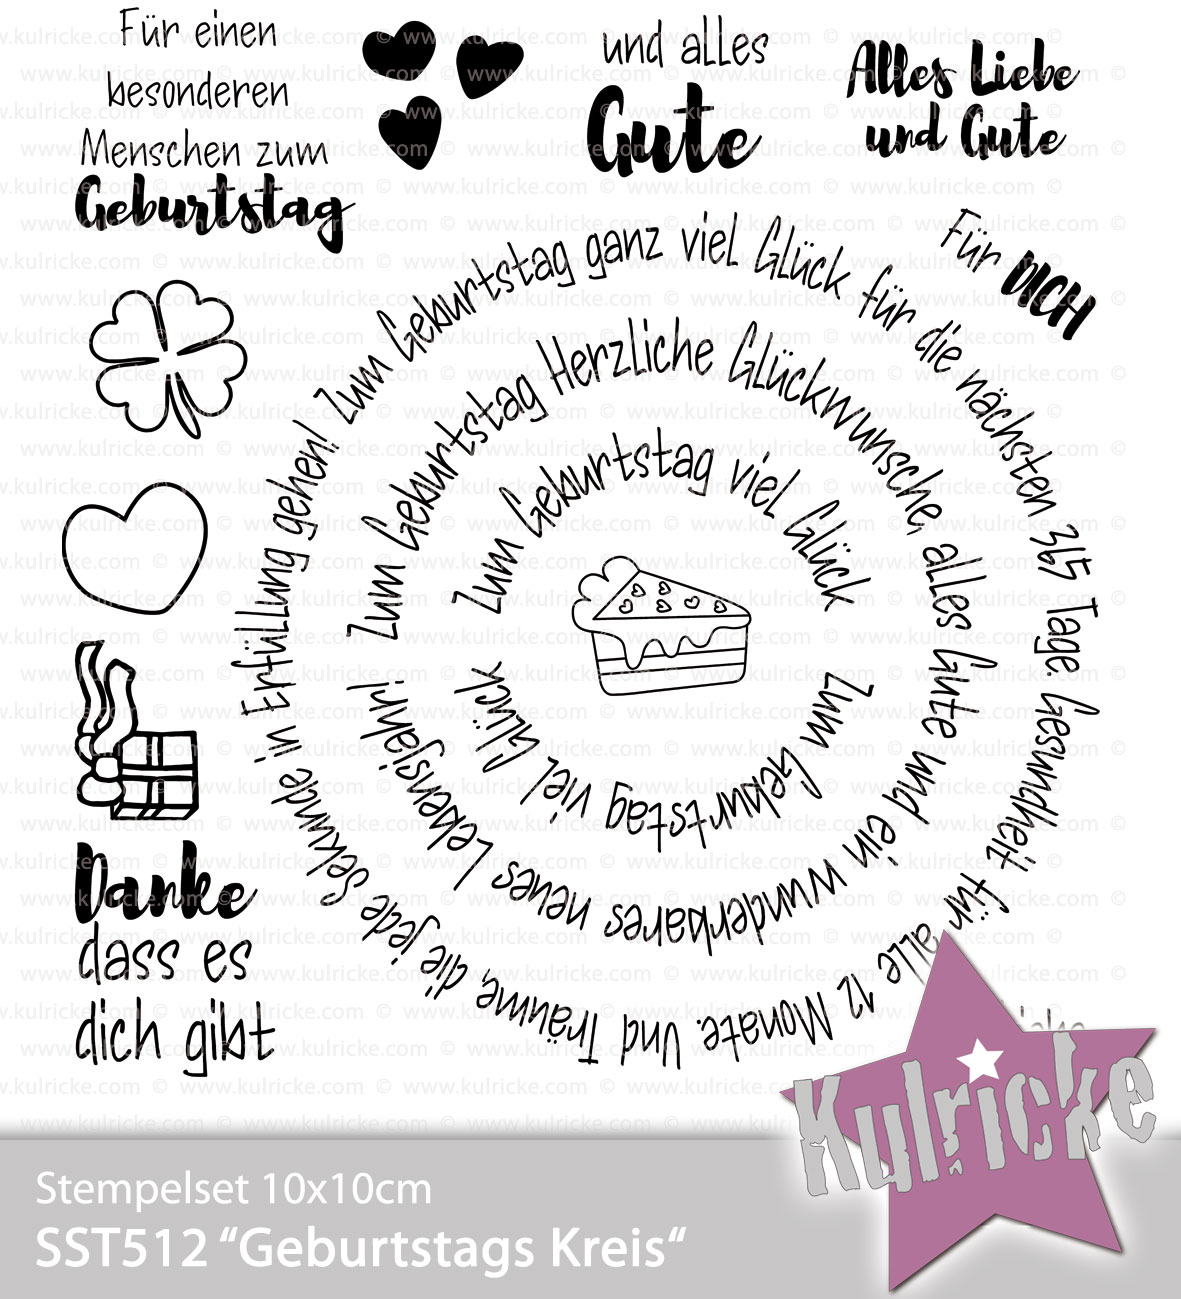 Für einen
besonderen
Menschen zum
Geburtstag
und alles
Gute
Alles Liebe
und Gute
Für DICH
Zum Geburtstag ganz viel Glück für die nächsten 365 Tage. Gesundheit für alle 12 Monate. Und Träume, die jede Sekunde in Erfüllung gehen!
Zum Geburtstag Herzliche Glückwünsche, alles Gute und ein wunderbares neues Lebensjahr!
Zum Geburtstag viel Glück
Zum Geburtstag viel Glück
Danke
dass es
dich gibt
Kulricke
Stempelset 10x10cm
SST512 “Geburtstags Kreis“
www.kulricke.com ©